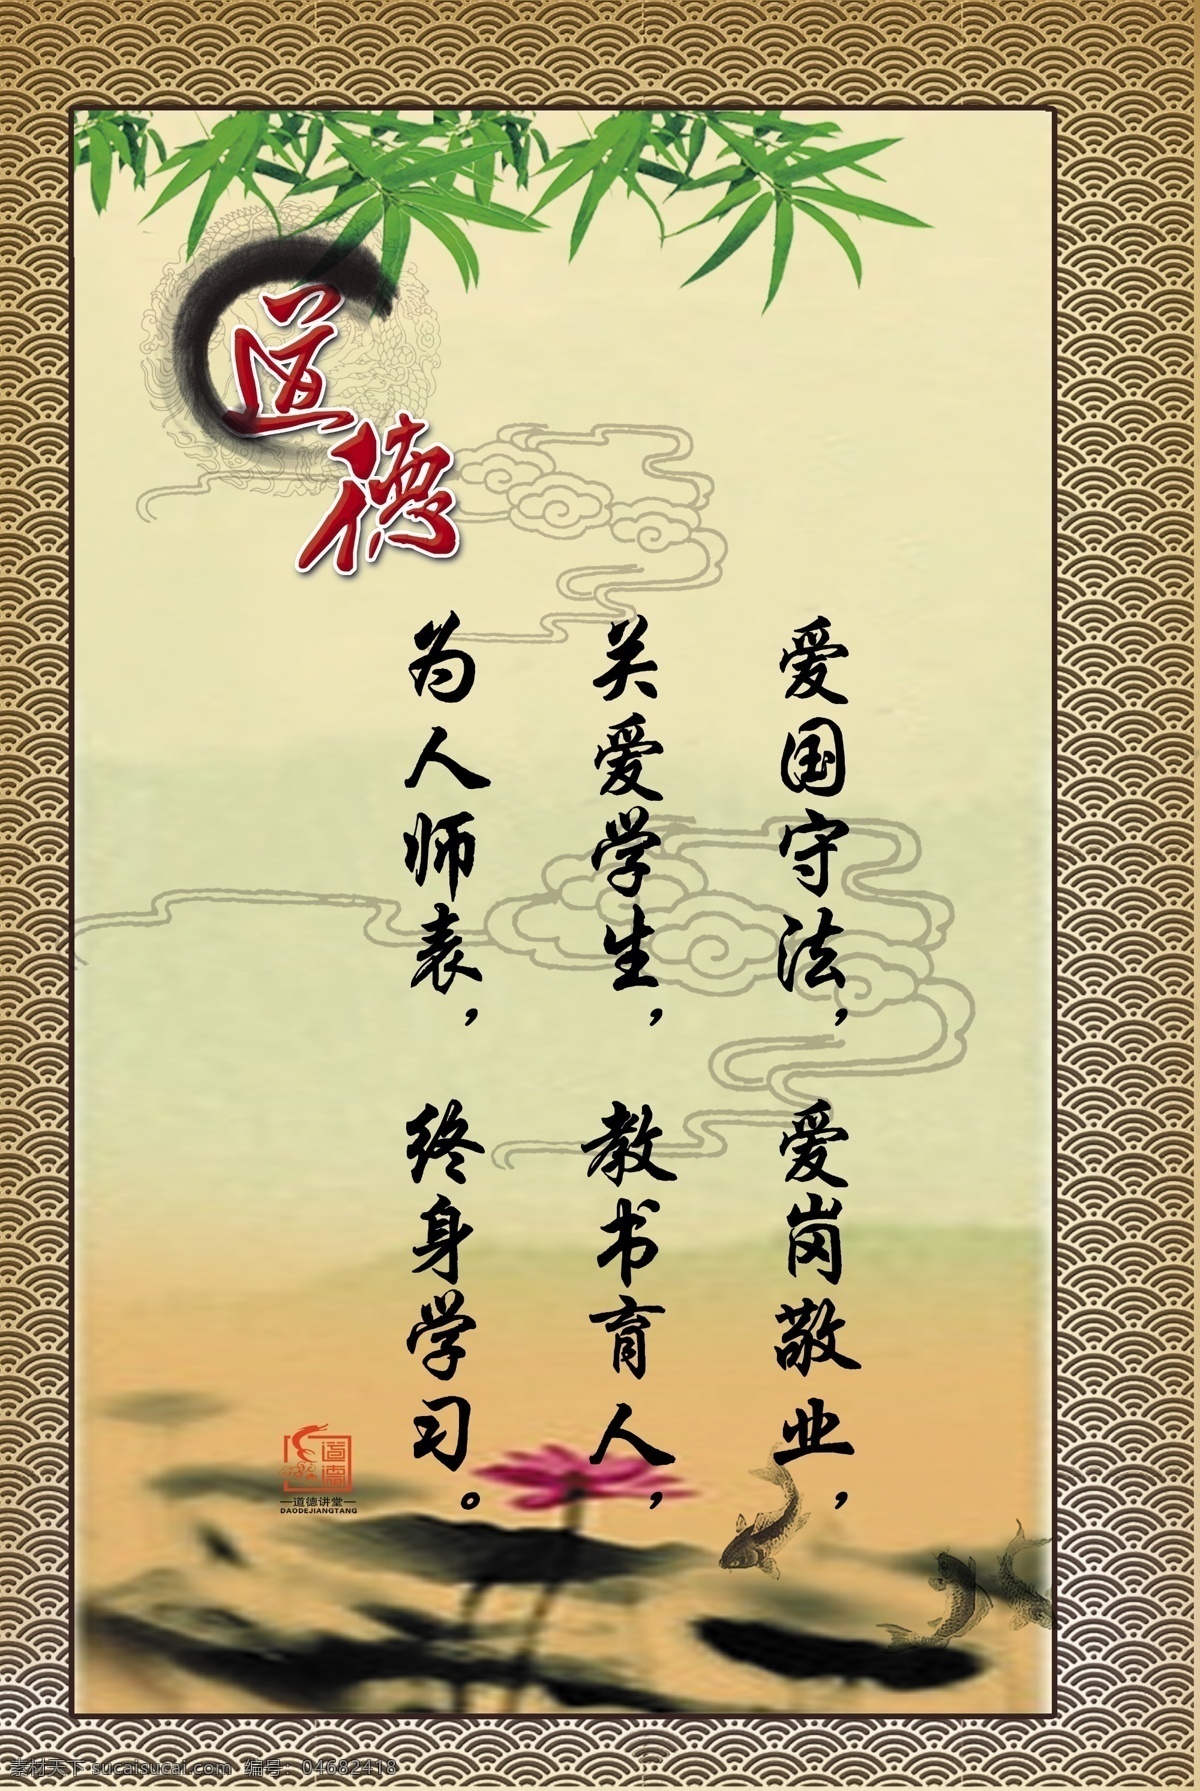 道德
爱国守法，爱岗敬业，
关爱学生，教书育人，
为人师表，终身学习。
道德
道德讲堂
DAODEJIANGTANG
素材天下 sucaisucai.com 编号：04682418